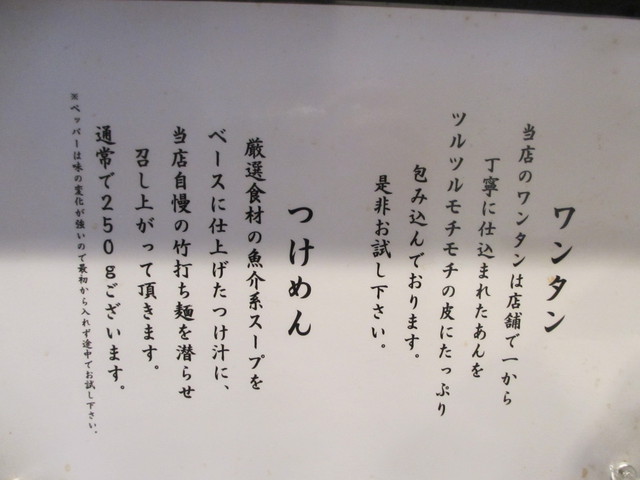 ワンタン
当店のワンタンは店舗で一から
丁寧に仕込まれたあんを
ツルツルモチモチの皮にたっぷり
包み込んでおります。
是非お試し下さい。
つけめん
厳選食材の魚介系スープを
ベースに仕上げたつけ汁に、
当店自慢の竹打ち麺を潜らせ
召し上がって頂きます。
通常で250gございます。
※ペッパーは味の変化が強いので最初から入れず途中でお試し下さい。